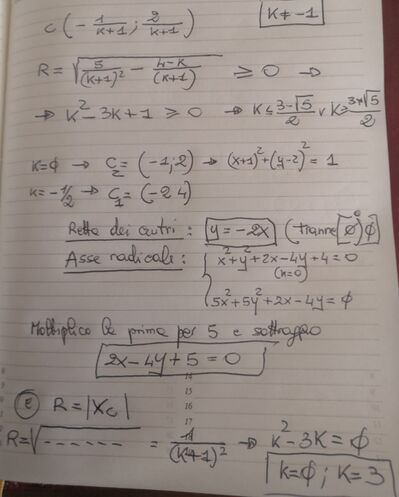 C(-1/k+1; 2/k+1) K≠-1
R = √(5/(k+1)² - 4-k/(k+1)) ≥ 0 →
→ k²-3k+1 ≥ 0 → k ≤ 3-√5/2 v k ≥ 3+√5/2
k=φ → C₂ = (-1; 2) → (x+1)²+(y-2)² = 1
k=-1/2 → C₁ = (-2 4)
Retta dei centri: y=-2x (tranne
Asse radicale: { x²+y²+2x-4y+4=0
(k=0)
5x²+5y²+2x-4y=φ
Moltiplico la prima per 5 e sottraggo
2x-4y+5=0
14
15
16
17
18
19
e R=|Xc|
R=√------ = 1/(k+1)² → k²-3k=φ
k=φ; k=3